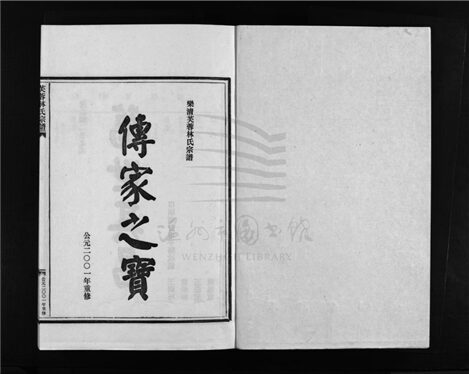 樂清芙蓉林氏宗譜
傳家之寶
公元二〇〇一年重修
芙蓉林氏宗譜
公元二〇〇一年重修
溫州市圖書館
WENZHOU LIBRARY